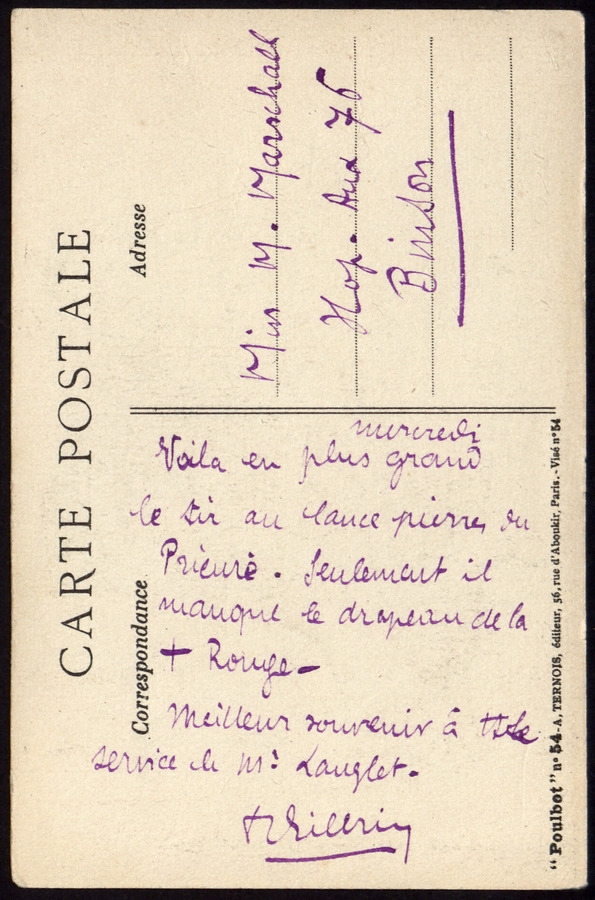 CARTE POSTALE
Correspondance
Adresse
mercredi
Voila en plus grand
le tir au lance pierres du
Prieuré. Seulement il
manque le drapeau de la
+ Rouge -
Meilleur souvenir à
service de Mr Langlet.
Miss M. Marschall
Hop. Aux 76
Binson
"Poulbot" n° 54 - A. TERNOIS, éditeur, 56, rue d'Aboukir, Paris. - Visé n° 54